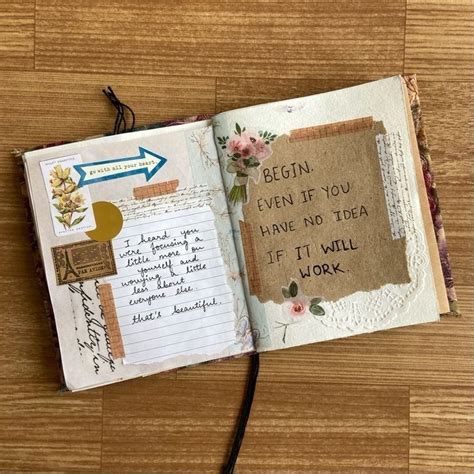 go with all your heart.
PAR AVION
I heard you
were focusing a
little more on
yourself and
worrying a little
less about
everyone else.
that's beautiful.
BEGIN.
EVEN IF YOU
HAVE NO IDEA
IF IT WILL
WORK.